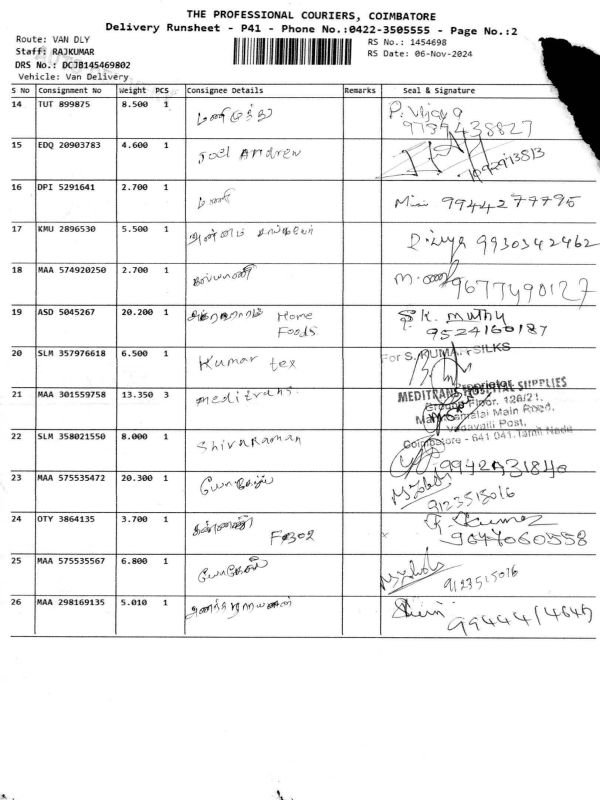 THE PROFESSIONAL COURIERS, COIMBATORE
Delivery Runsheet - P41 - Phone No.:0422-3505555 - Page No.:2
Route: VAN DLY
Staff: RAJKUMAR
DRS No.: DCJB145469802
Vehicle: Van Delivery
RS No.: 1454698
RS Date: 06-Nov-2024
S No Consignment No Weight PCS Consignee Details Remarks Seal & Signature
14 TUT 899875 8.500 1 மணிமுத்து P. Vijaya
9789438827
15 EDQ 20903783 4.600 1 Joel Andrew
16 DPI 5291641 2.700 1 மணி 9944277795
17 KMU 2896530 5.500 1 9930342462
18 MAA 574920250 2.700 1 கல்யாணி 9677490127
19 ASD 5045267 20.200 1 Home Foods S.K. Muthu
9524160187
20 SLM 357976618 6.500 1 Kumar tex For S. KUMAR SILKS
Proprietor
21 MAA 301559758 13.350 3 meditrans. MEDITRANS HOSPITAL SUPPLIES
Ground Floor, 126/21,
Main Road,
Vadavalli Post,
Coimbatore - 641 041. Tamil Nadu
22 SLM 358021550 8.000 1 Shivaraman
23 MAA 575535472 20.300 1 யோகேஷ்
9123515016
24 OTY 3864135 3.700 1 கண்ணன் F-302 Kumar
9677060558
25 MAA 575535567 6.800 1 யோகேஷ்
9123515016
26 MAA 298169135 5.010 1